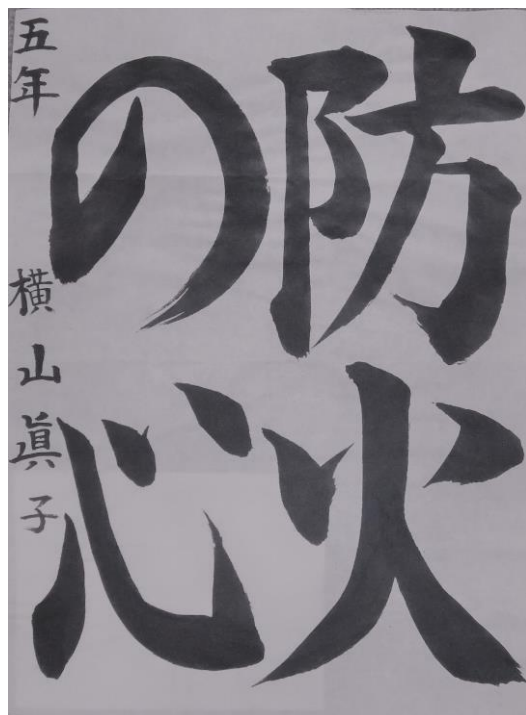 防火
の心
五年 横山眞子